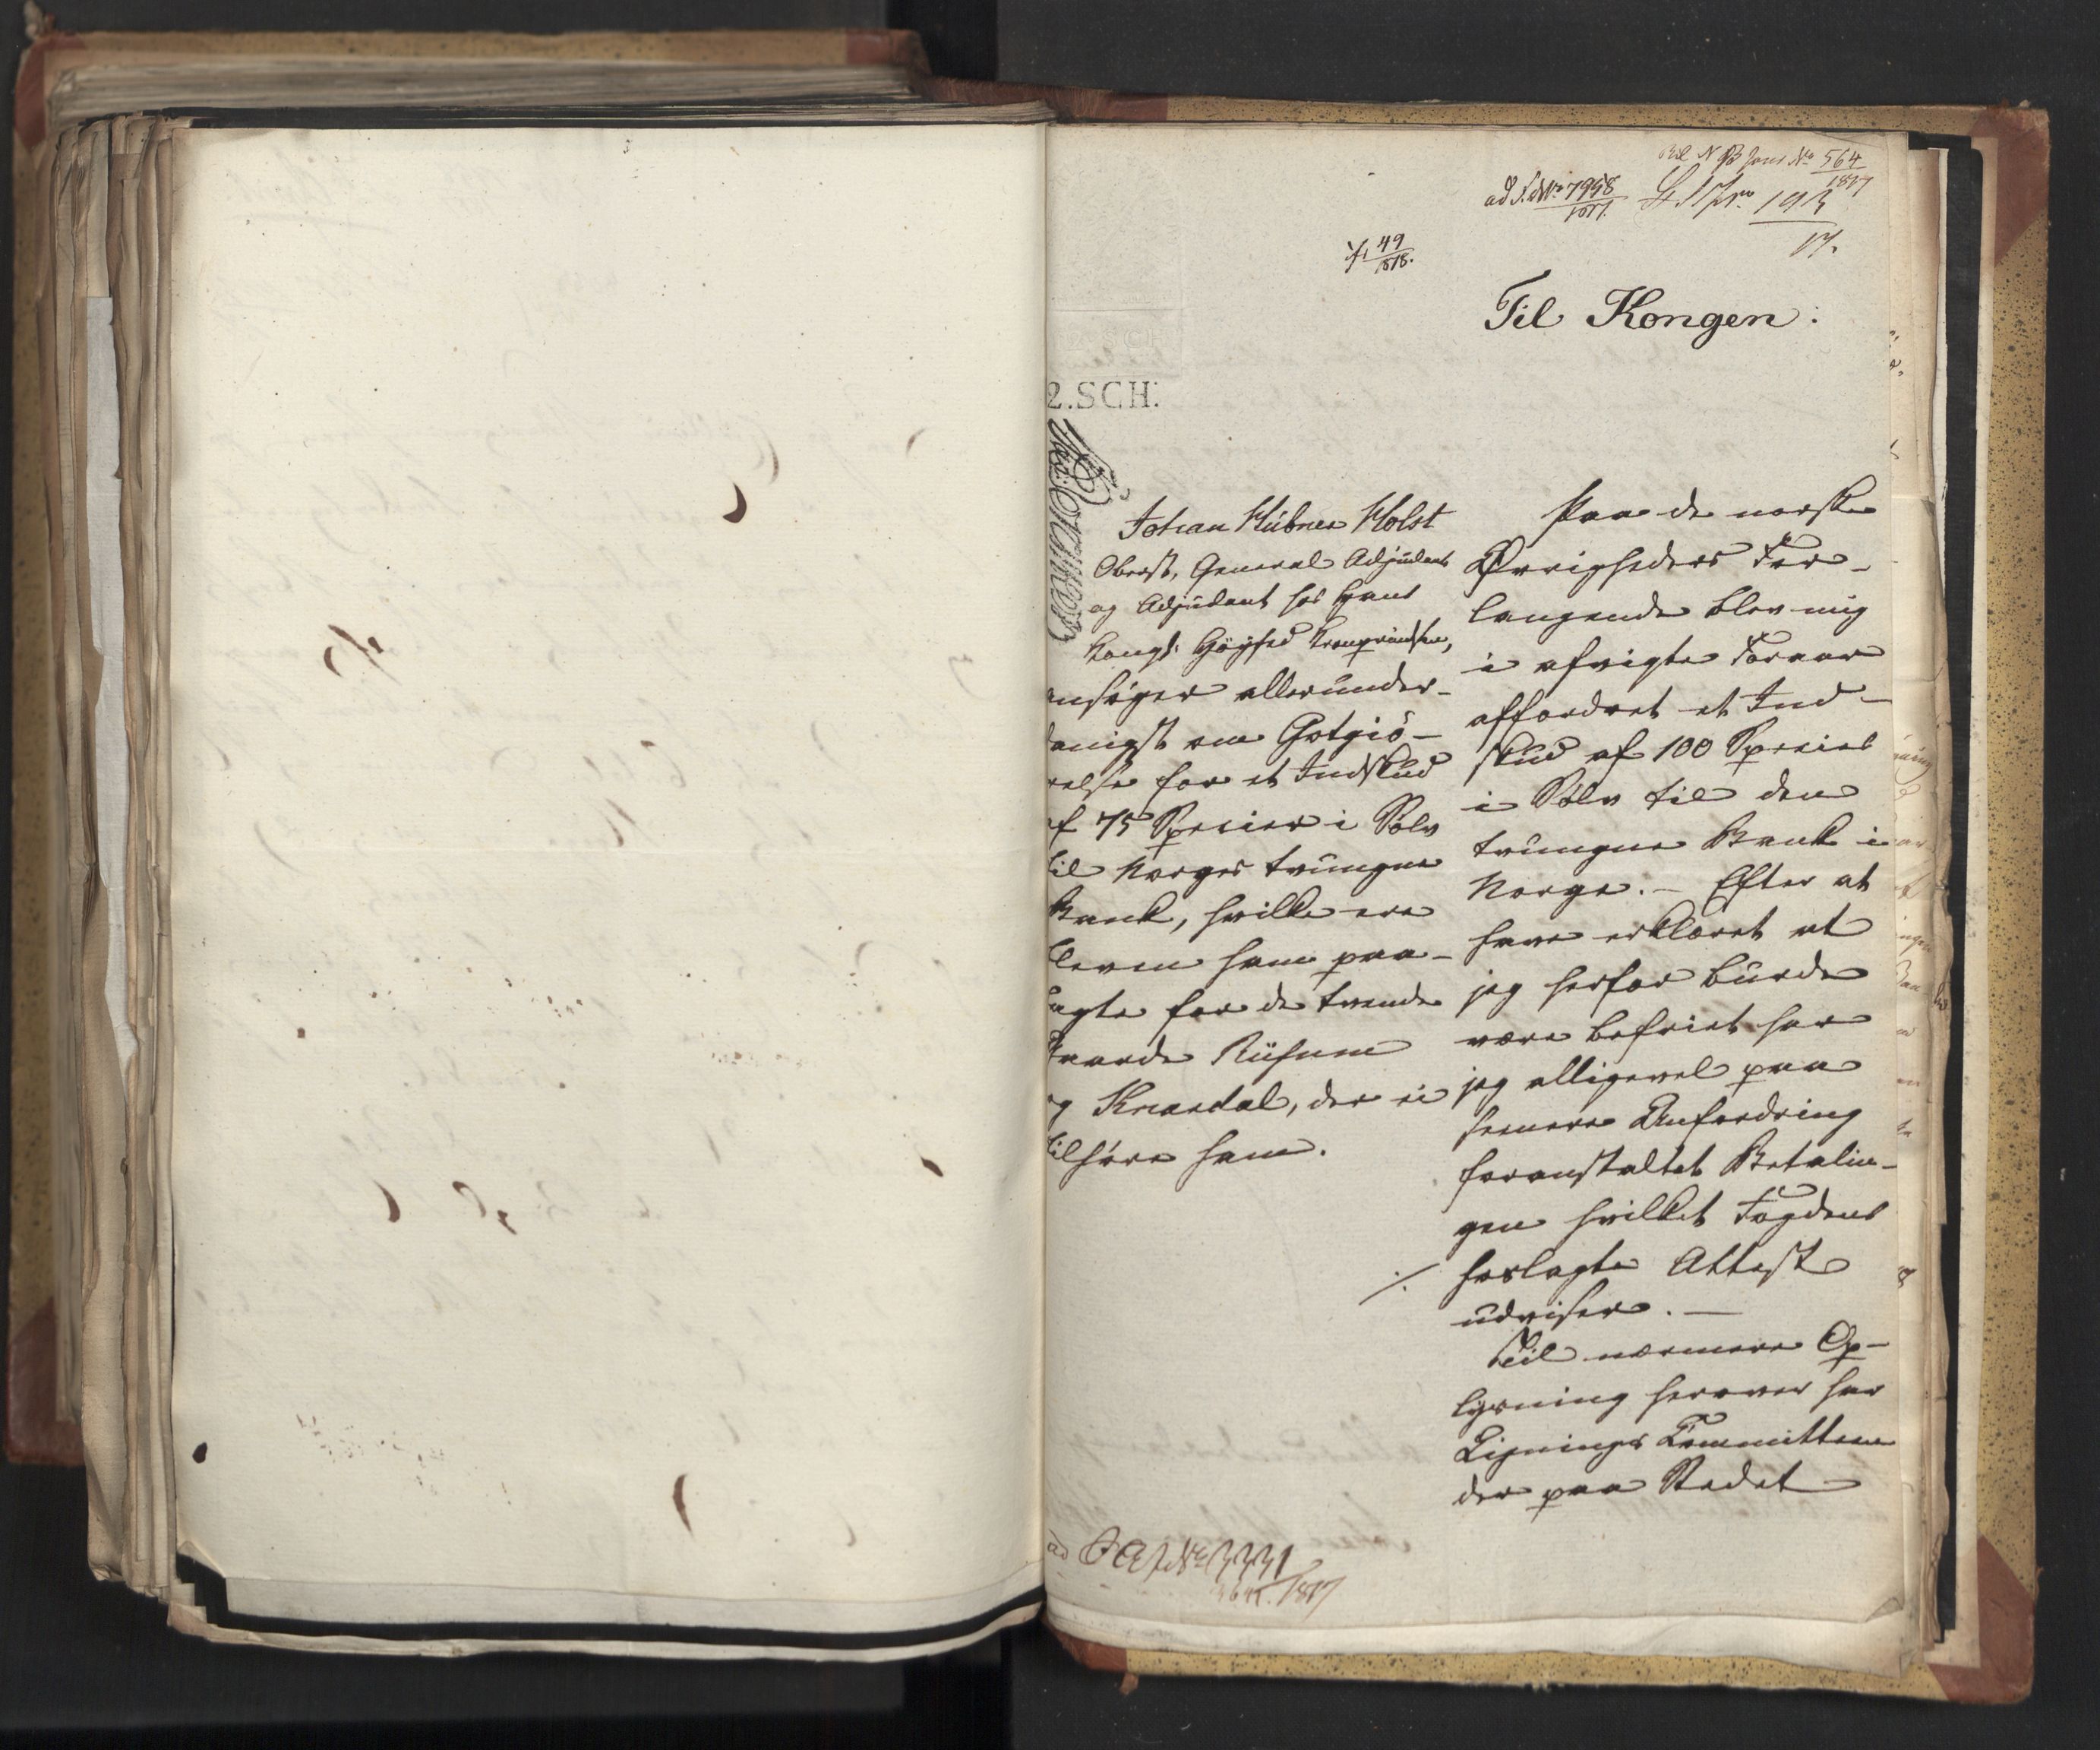 Bil N B Jour No 564
1817
ad J.dNr. 7958
1817.
193
17.
49
1818.
Til Kongen:
2.SCH:
Johan Hübner Holst
Oberst, General Adjüdant
og Adjüdant hos Hans
Kongl: Høyhed Kronprindsen,
ansøger alleründer-
danigst om Gotgiö-
relse for et Indskud
af 75 Species i Sölv
til Norges tvüngne
Bank, hvilke ere
bleven ham paa-
lagte for de tvende
Gaarde Riihsem
og Knardal, der ei
tilhøre ham.
Paa de norske
Øvrigheders For-
langende blev mig
i afvigte Foraar
affordret et Ind-
skud af 100 Species
i Sölv til den
tvüngne Bank i
Norge. - Efter at
have erklæret at
jeg herfor bürde
være befriet har
jeg alligevel paa
seenere Anfordring
foranstaltet Betalin-
gen hvilket Fogdens
./. hoslagte Attest
üdviser. -
Til nærmere Op-
lysning herover har
Lignings Committeen
der paa Stedet
ad No 3331
1817